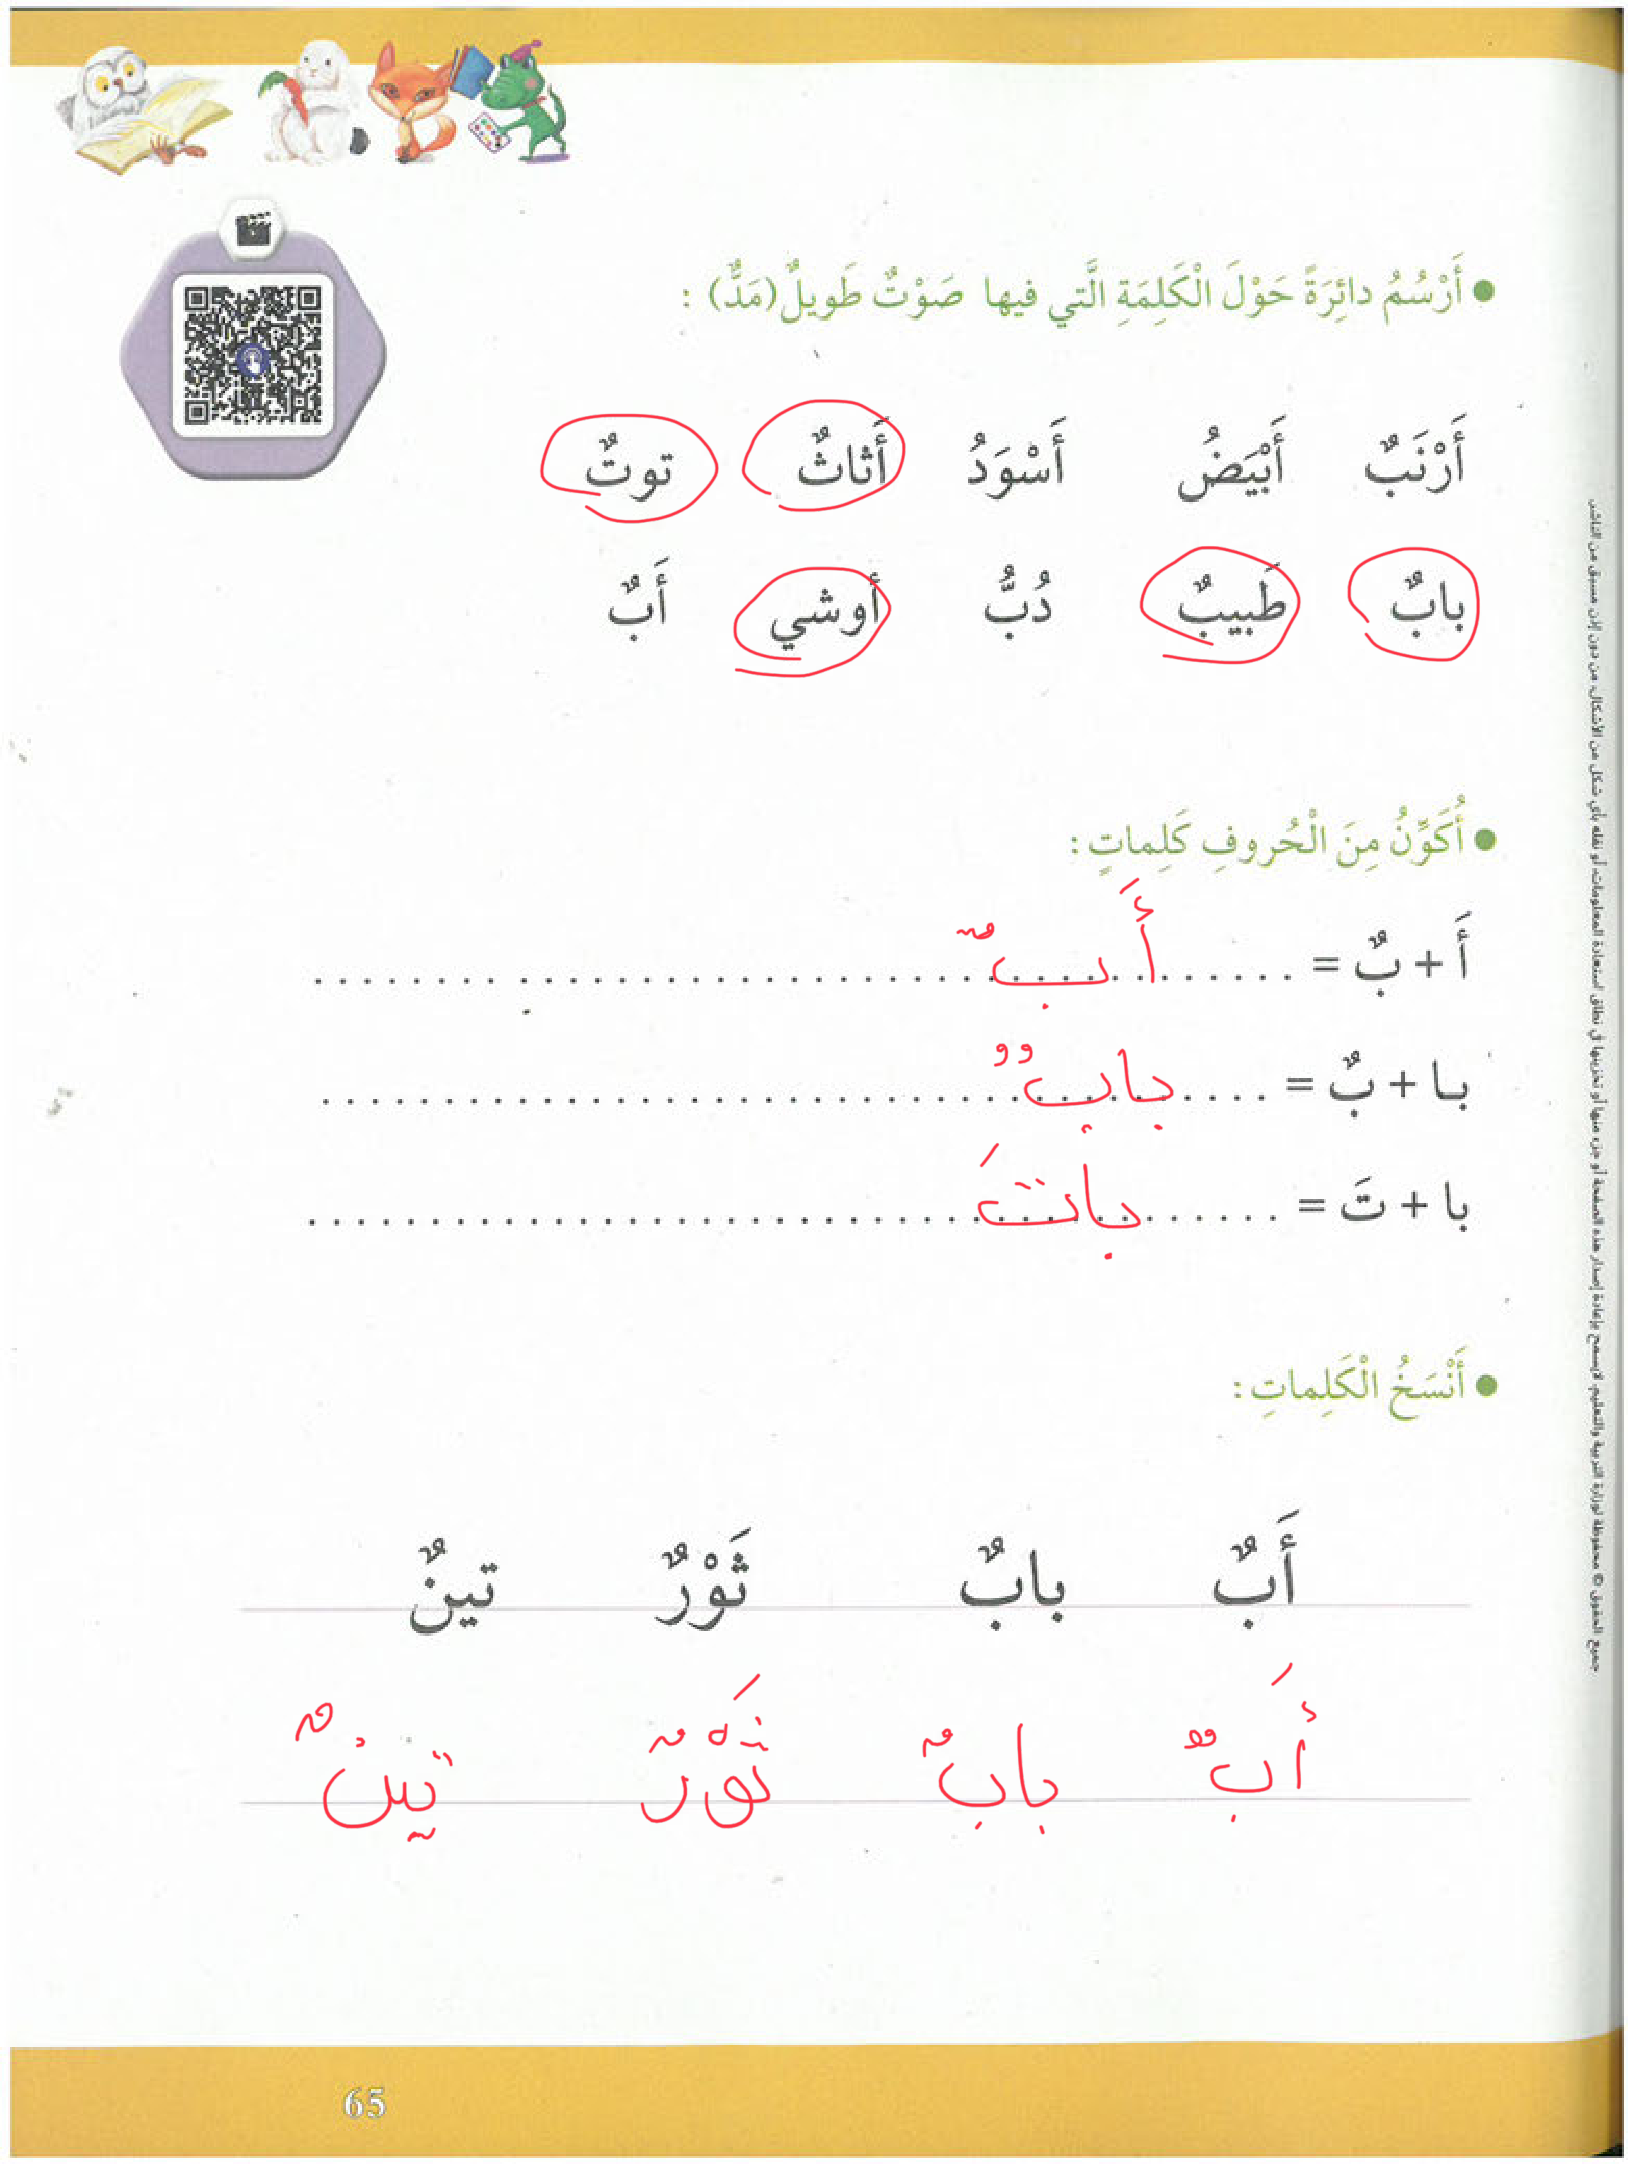 ● أَرْسُمُ دائِرَةً حَوْلَ الْكَلِمَةِ الَّتي فيها صَوْتٌ طَويلٌ (مَدٌّ) :
أَرْنَبٌ أَبْيَضُ أَسْوَدُ أَثاثٌ توتٌ
بابٌ طَبيبٌ دُبٌّ أوشي أَبٌ
● أُكَوِّنُ مِنَ الْحُروفِ كَلِماتٍ :
أَ + بٌ = أَبٌ
با + بٌ = بابٌ
با + تَ = باتَ
● أَنْسَخُ الْكَلِماتِ :
أَبٌ بابٌ ثَوْرٌ تينٌ
أَبٌ بابٌ ثَوْرٌ تينٌ
65
جميع الحقوق © محفوظة لوزارة التربية والتعليم. لا يسمح بإعادة إصدار هذه الصفحة أو جزء منها أو تخزينها في نطاق استعادة المعلومات، أو نقله بأي شكل من الأشكال، من دون إذن مسبق من الناشر.